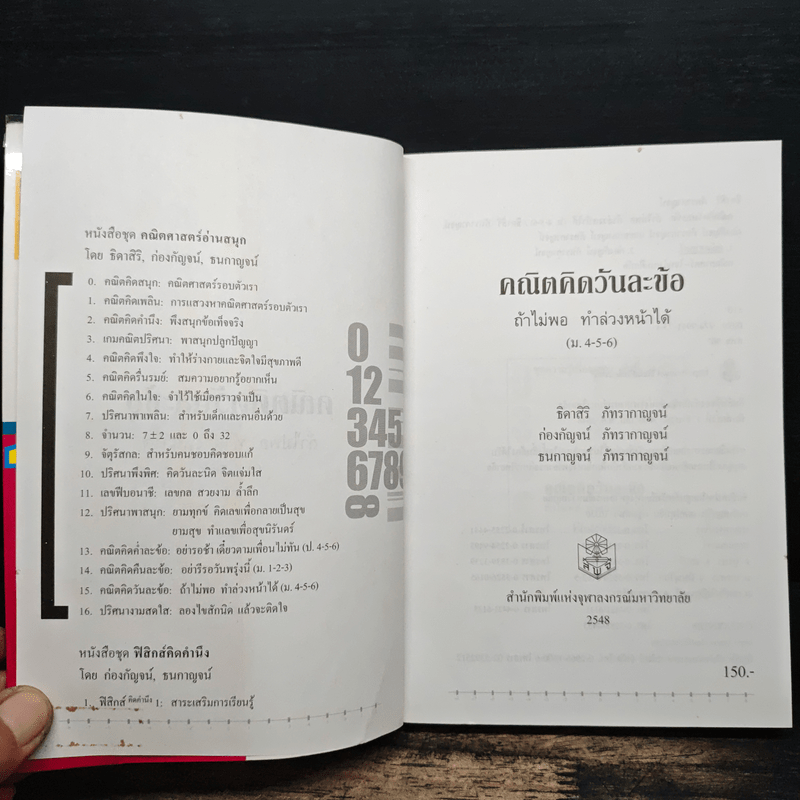 หนังสือชุด คณิตศาสตร์อ่านสนุก
โดย ธิดาสิริ, ก่องกัญจน์, ธนกาญจน์
0. คณิตคิดสนุก: คณิตศาสตร์รอบตัวเรา
1. คณิตคิดเพลิน: การแสวงหาคณิตศาสตร์รอบตัวเรา
2. คณิตคิดคำนึง: พึงสนุกข้อเท็จจริง
3. เกมคณิตปริศนา: พาสนุกปลูกปัญญา
4. คณิตคิดพึงใจ: ทำให้ร่างกายและจิตใจมีสุขภาพดี
5. คณิตคิดรื่นรมย์: สมความอยากรู้อยากเห็น
6. คณิตคิดในใจ: จำไว้ใช้เมื่อคราวจำเป็น
7. ปริศนาพาเพลิน: สำหรับเด็กและคนอื่นด้วย
8. จำนวน: 7 ± 2 และ 0 ถึง 32
9. จัตุรัสกล: สำหรับคนชอบคิดชอบแก้
10. ปริศนาพึงพิศ: คิดวันละนิด จิตแจ่มใส
11. เลขฟีบอนาชี: เลขกล สวยงาม ล้ำลึก
12. ปริศนาพาสนุก: ยามทุกข์ คิดเลขเพื่อกลายเป็นสุข
ยามสุข ทำเลขเพื่อสุขนิรันดร์
13. คณิตคิดค่ำละข้อ: อย่ารอช้า เดี๋ยวตามเพื่อนไม่ทัน (ป. 4-5-6)
14. คณิตคิดคืนละข้อ: อย่ารีรอวันพรุ่งนี้ (ม. 1-2-3)
15. คณิตคิดวันละข้อ: ถ้าไม่พอ ทำล่วงหน้าได้ (ม. 4-5-6)
16. ปริศนางามสดใส: ลองไขสักนิด แล้วจะติดใจ
0
12
345
6789
8
หนังสือชุด ฟิสิกส์คิดคำนึง
โดย ก่องกัญจน์, ธนกาญจน์
1. ฟิสิกส์ คิดคำนึง 1: สาระเสริมการเรียนรู้
คณิตคิดวันละข้อ
ถ้าไม่พอ ทำล่วงหน้าได้
(ม. 4-5-6)
ธิดาสิริ ภัทรากาญจน์
ก่องกัญจน์ ภัทรากาญจน์
ธนกาญจน์ ภัทรากาญจน์
สำนักพิมพ์แห่งจุฬาลงกรณ์มหาวิทยาลัย
2548
150.-